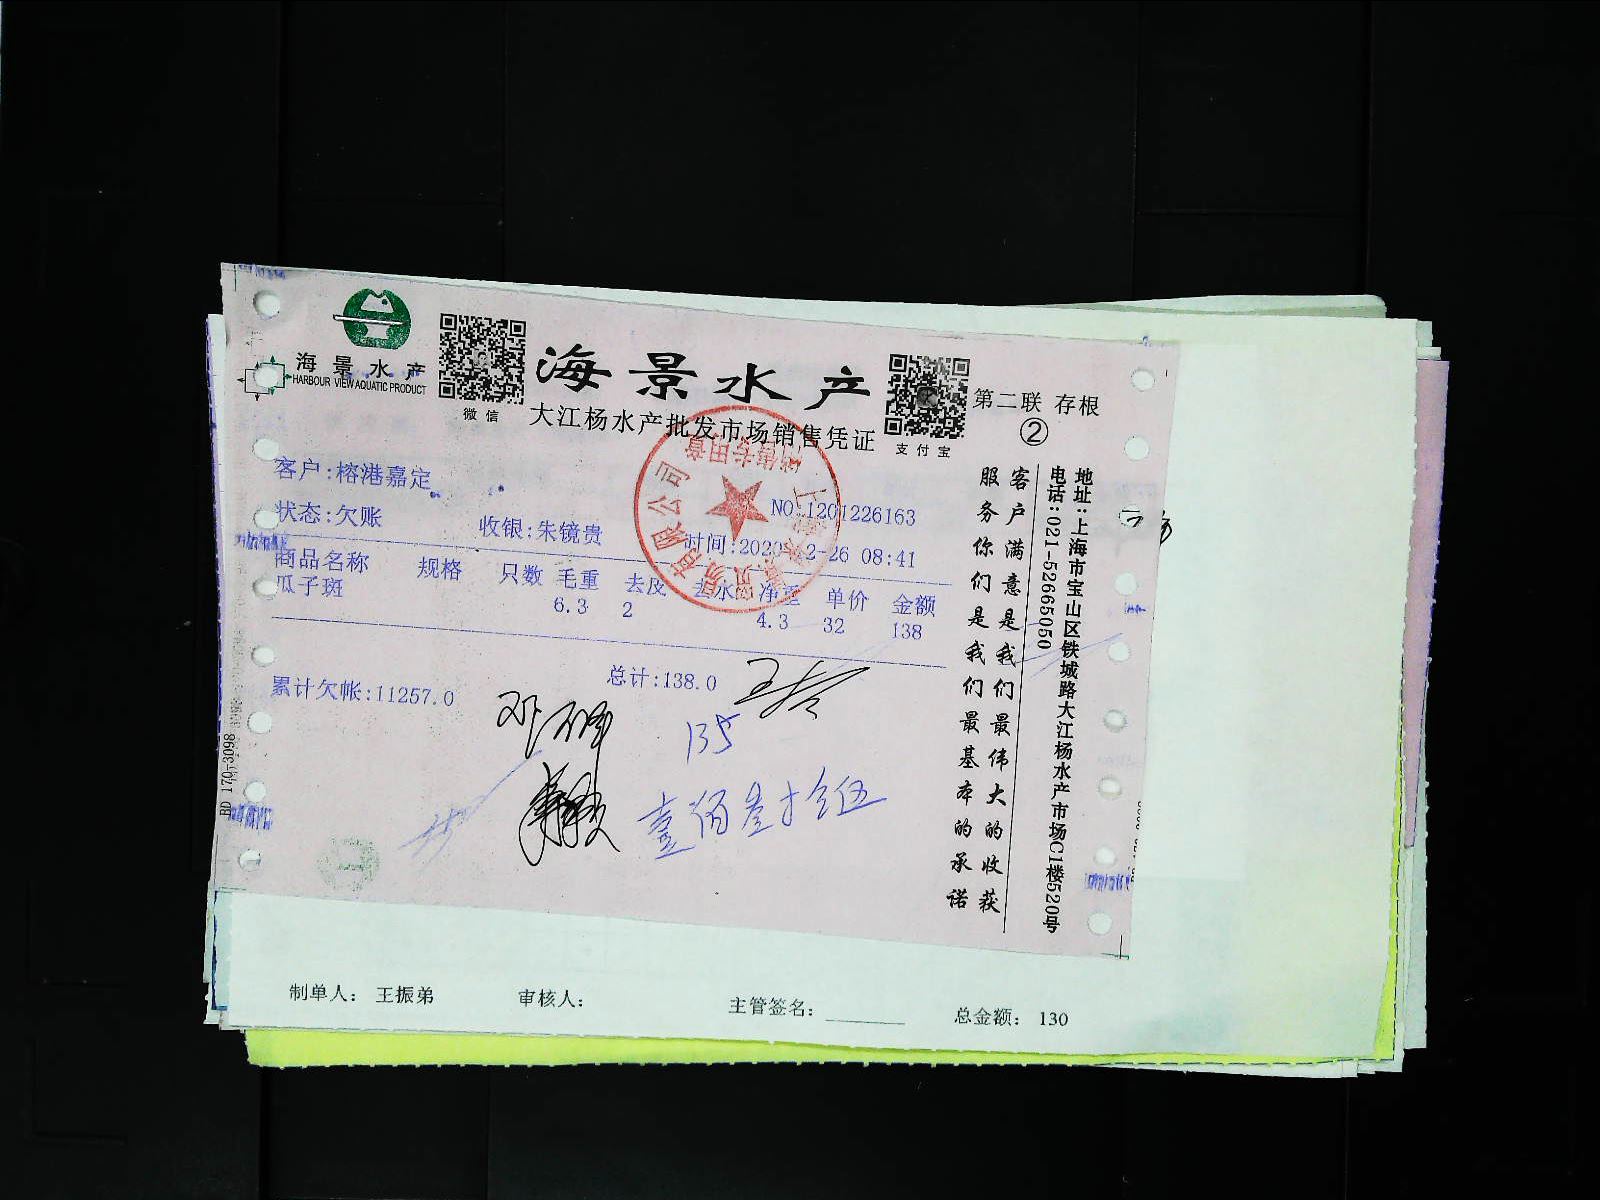 海景水产
HARBOUR VIEW AQUATIC PRODUCT
微信
海景水产
大江杨水产批发市场销售凭证
支付宝
第二联 存根
②
客户:榕港嘉定
状态:欠账
收银:朱镜贵
NO:1201226163
时间:2020-12-26 08:41
商品名称 规格 只数 毛重 去皮 去水 净重 单价 金额
瓜子斑 6.3 2 4.3 32 138
累计欠帐:11257.0
总计:138.0
135
壹佰叁拾伍
客户满意是我们最伟大的收获
服务你们是我们最基本的承诺
地址:上海市宝山区铁城路大江杨水产市场C1楼520号
电话:021-52665050
BD 170-3098
有限公司
销售专用章
制单人: 王振弟
审核人:
主管签名:
总金额: 130